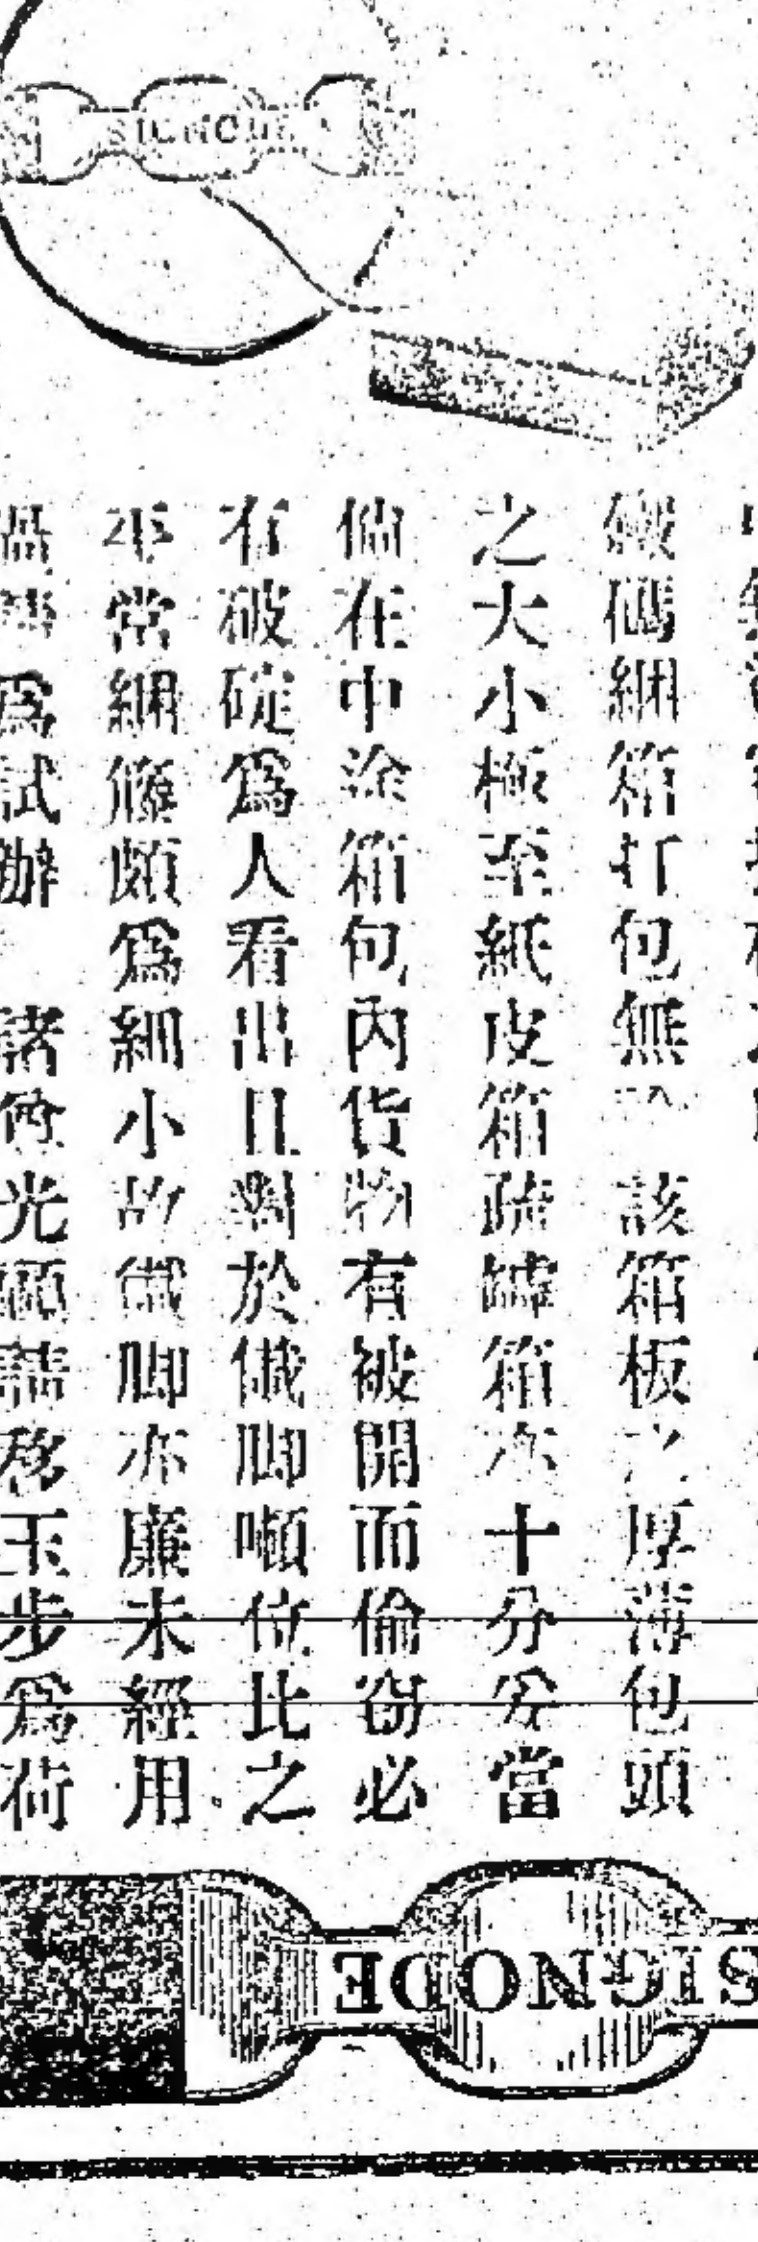 SIGNODE
碼綑箱打包無 該箱板之厚薄包頭
之大小極至紙皮箱疏罅箱亦十分妥當
倘在中途箱包內貨物有被開而偷窃必
有破碇為人看出且對於儎脚噸位比之
平常綑籐頗為細小故儎脚亦廉未經用
為試辦 諸君光顧請移玉步為荷
SIGNODE